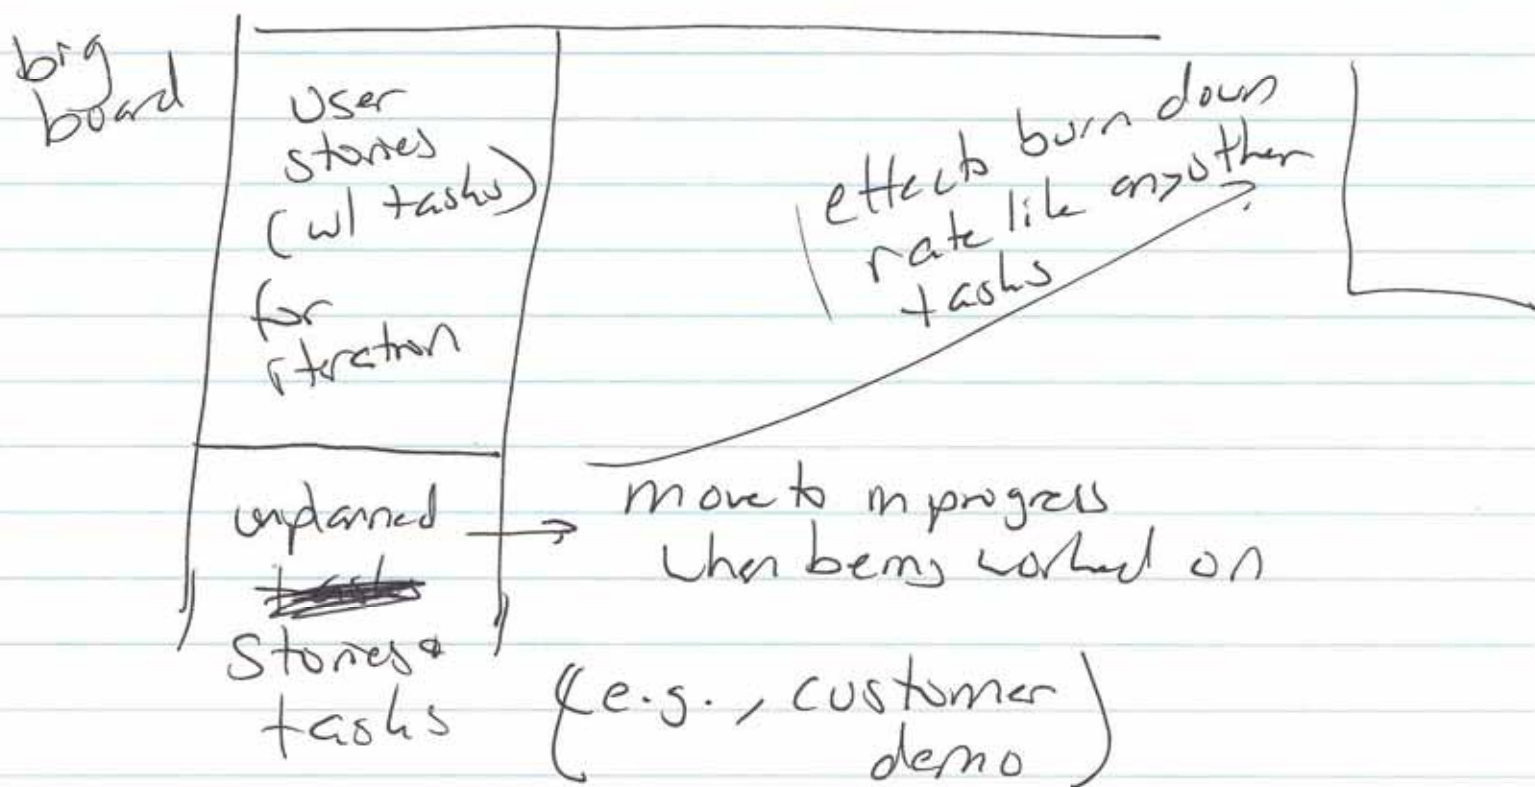 big
board
user
stories
(w/ tasks)
for
iteration
effects burn down
rate like any other
tasks
unplanned
stories &
tasks
move to in progress
when being worked on
(e.g., customer
demo)